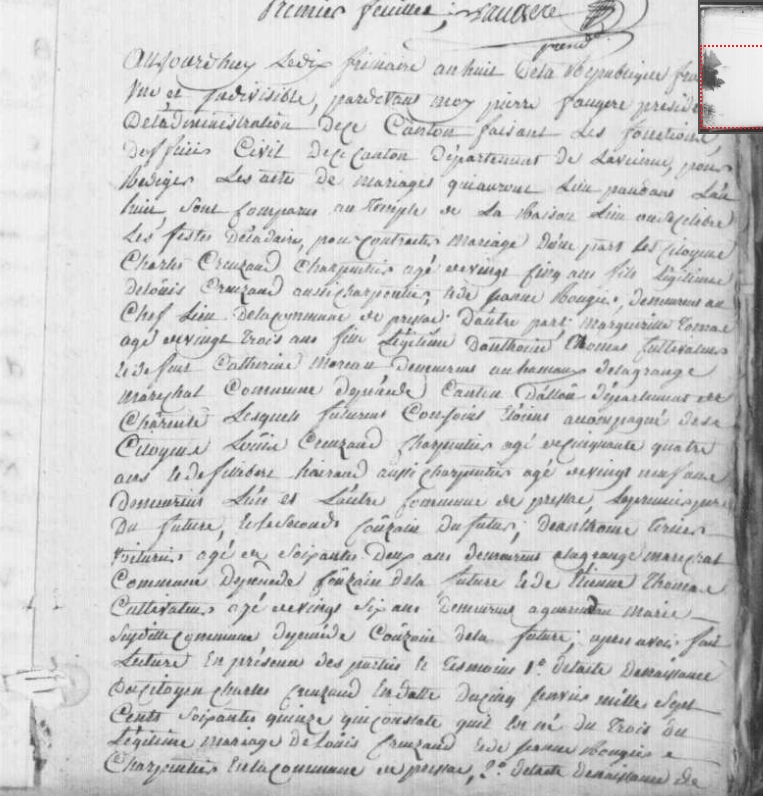 Premier feuillet; faugere
presdt
Aujourdhuy Le dix frimaire an huit De la Republique fra
Une et Indivisible, pardevant moy pierre faugere preside
De Ladministration De ce Canton faisant Les fonctions
Dofficier Civil De ce Canton département de Lavienne, pour
Rediger Les actes de mariages qui auront Lieu pandans Lan
huit, sont Comparus au Temple de La Raison Lieu ou se celebre
Les festes Decadaire, pour Contracter Mariage Dune part Les Citoyens
Charles Creuzaud Charpentier agé de vingt Cinq ans fils Légitime
de Louis Creuzaud aussi charpentier, et de jeanne Rougier, demeurant au
Chef Lieu De la Commune de pressac Dautre part Margueritte Tomas
agé de vingt Trois ans fille Légitime Danthoine Thomas Cultivateur
et de feue Catherine Moreau Demeurant au hameau de lagrange
Mareschat Commune Canton Département de
Charente Lesquels futurs Conjoint étoient accompagné de
Citoyens Louis Creuzaud Charpentier agé de cinquante quatre
ans et de aussi charpentier agé de vingt neuf ans
Demeurant Lun et Lautre Commune de pressac, Le premier pere
Du future, et Le second Couzain du futur; De anthoine
voiturier agé de Soixante Deux ans demeurant a lagrange marechat
Commune Couzain de la future et de Etienne Thomas
Cultivateur agé de vingt Six ans Demeurant marie
Susditte Commune Couzain de la future; apres avoir fait
Lecture En présence des parties et Tesmoins 1º. de lacte De naissance
Du citoyen Charles Creuzaud En datte du cinq janvier mille Sept
Cents Soixante quinze qui constate quil Est né du Trois du
Légitime mariage de Louis Creuzaud et de jeanne Rougier
Charpentier En la Commune de pressac, 2º. de lacte De naissance de